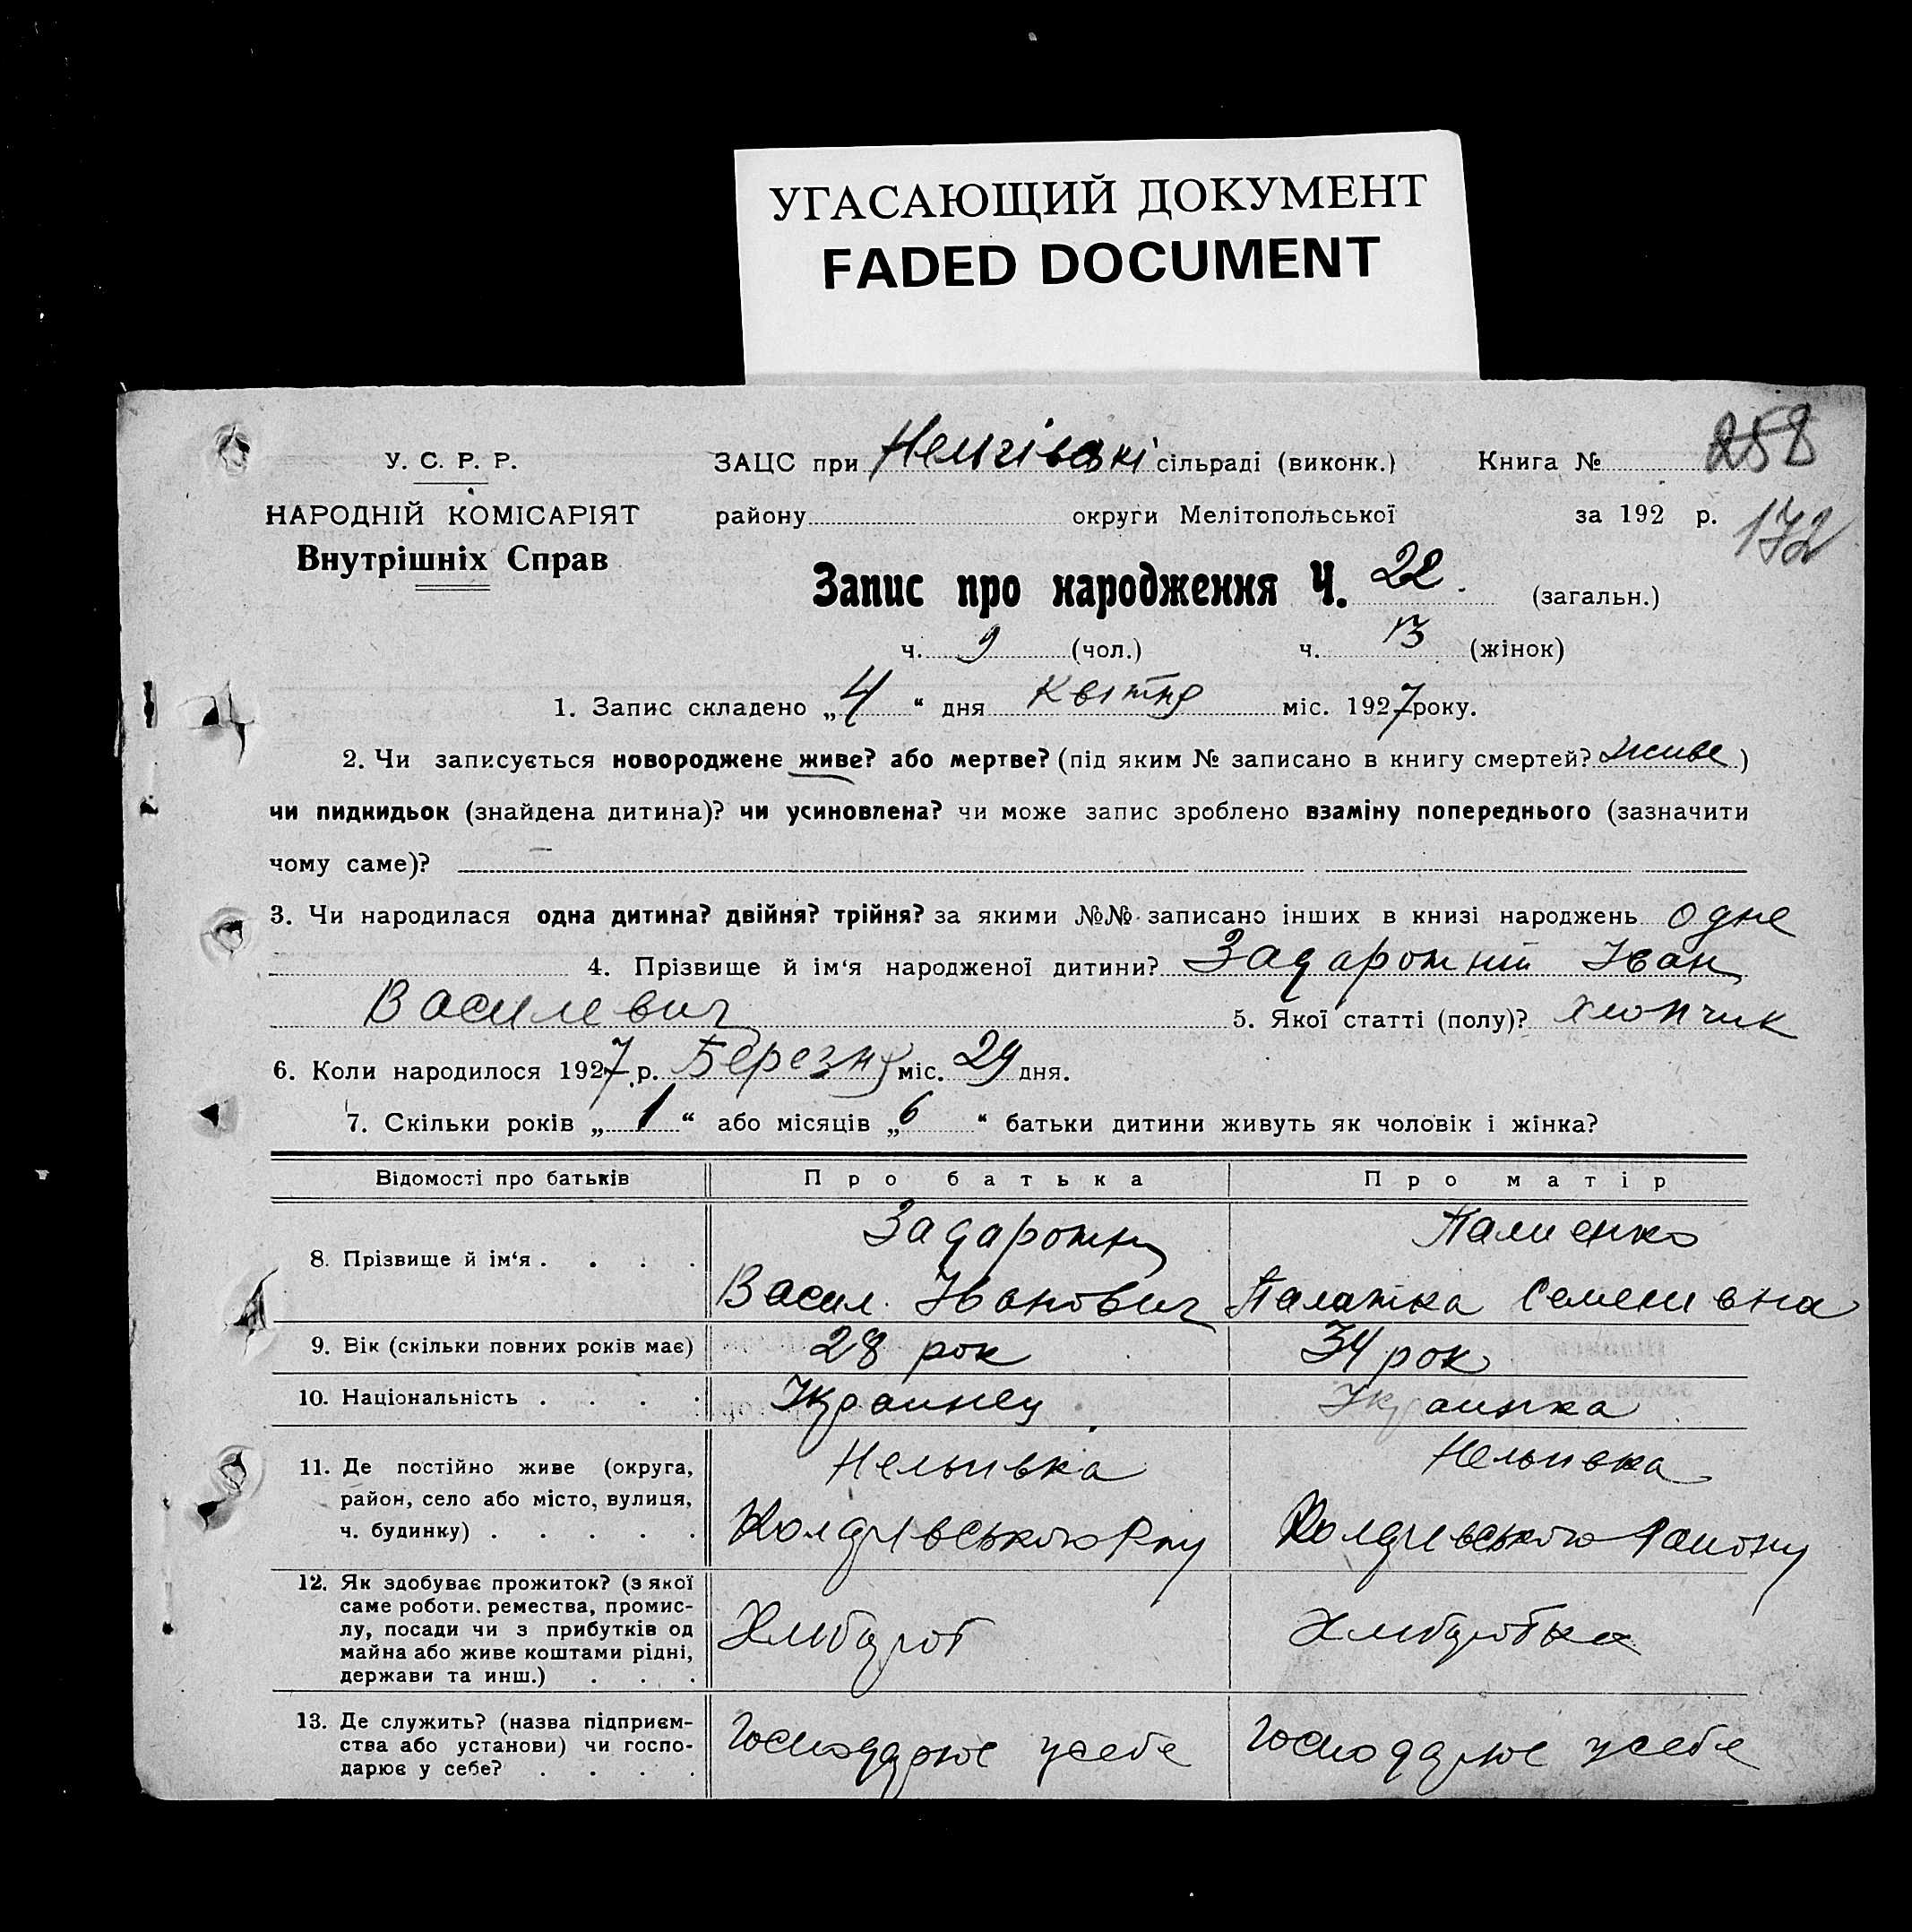 УГАСАЮЩИЙ ДОКУМЕНТ
FADED DOCUMENT
У. С. Р. Р.
НАРОДНІЙ КОМІСАРІЯТ
Внутрішніх Справ
ЗАЦС при сільраді (виконк.) Книга № 258
району округи Мелітопольської за 192 р. 172
Запис про народження Ч. 22. (загальн.)
ч. 9 (чол.) ч. 13 (жінок)
1. Запис складено „ 4 “ дня Квітня міс. 1927 року.
2. Чи записується новороджене живе? або мертве? (під яким № записано в книгу смертей? живе )
чи пидкидьок (знайдена дитина)? чи усиновлена? чи може запис зроблено взаміну попереднього (зазначити
чому саме)? —
3. Чи народилася одна дитина? двійня? трійня? за якими №№ записано інших в книзі народжень одне
4. Прізвище й ім‘я народженої дитини? Задарожній Іван
Василевич 5. Якої статті (полу)? хлопчик
6. Коли народилося 1927 р. Березня міс. 29 дня.
7. Скільки років „ 1 “ або місяців „ 6 “ батьки дитини живуть як чоловік і жінка?
Відомості про батьків Про батька Про матір
8. Прізвище й ім‘я . . . . Задарожн
Васил. Іванович Палажка Семенивна
9. Вік (скільки повних років має) 28 рок 34 рок
10. Національність . . . . Украинец Украинка
11. Де постійно живе (округа,
район, село або місто, вулиця,
ч. будинку) . . . . . Нельгивка Нельгивка
району
12. Як здобуває прожиток? (з якої
саме роботи. ремества, промис-
лу, посади чи з прибутків од
майна або живе коштами рідні,
держави та инш.) . . . Хлибороб Хлиборобка
13. Де служить? (назва підприєм-
ства або установи) чи госпо-
дарює у себе? . . . . Господарює у себе Господарює у себе